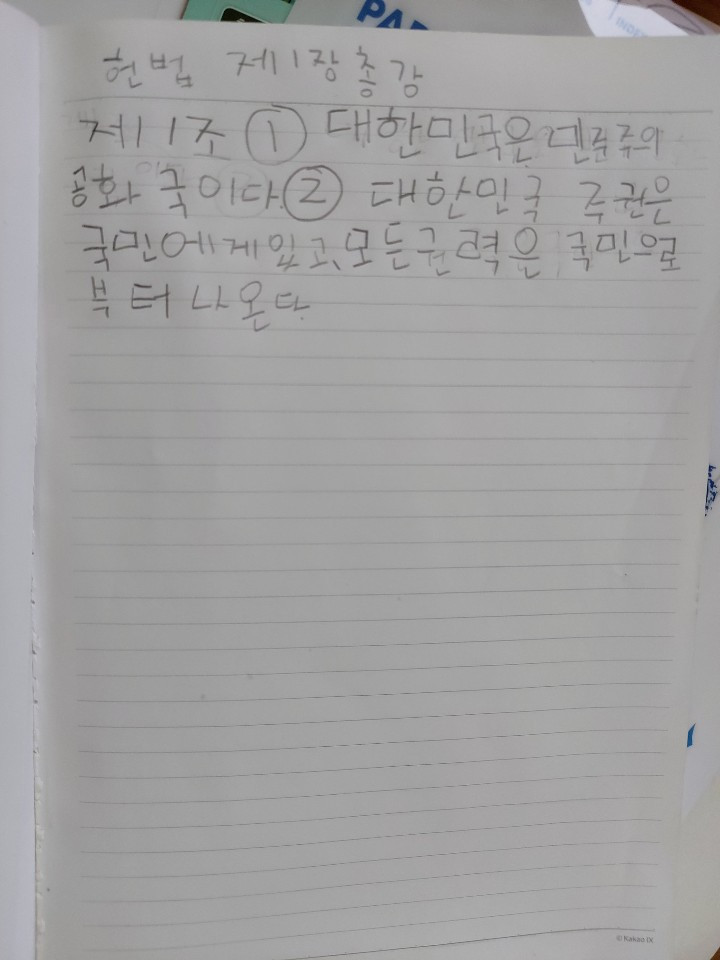 PAP
INDEX
헌법 제1장총강
제1조 ① 대한민국은 민주주의
공화국이다 ② 대한민국 주권은
국민에게 있고, 모든권력은 국민으로
부터 나온다
© Kakao IX